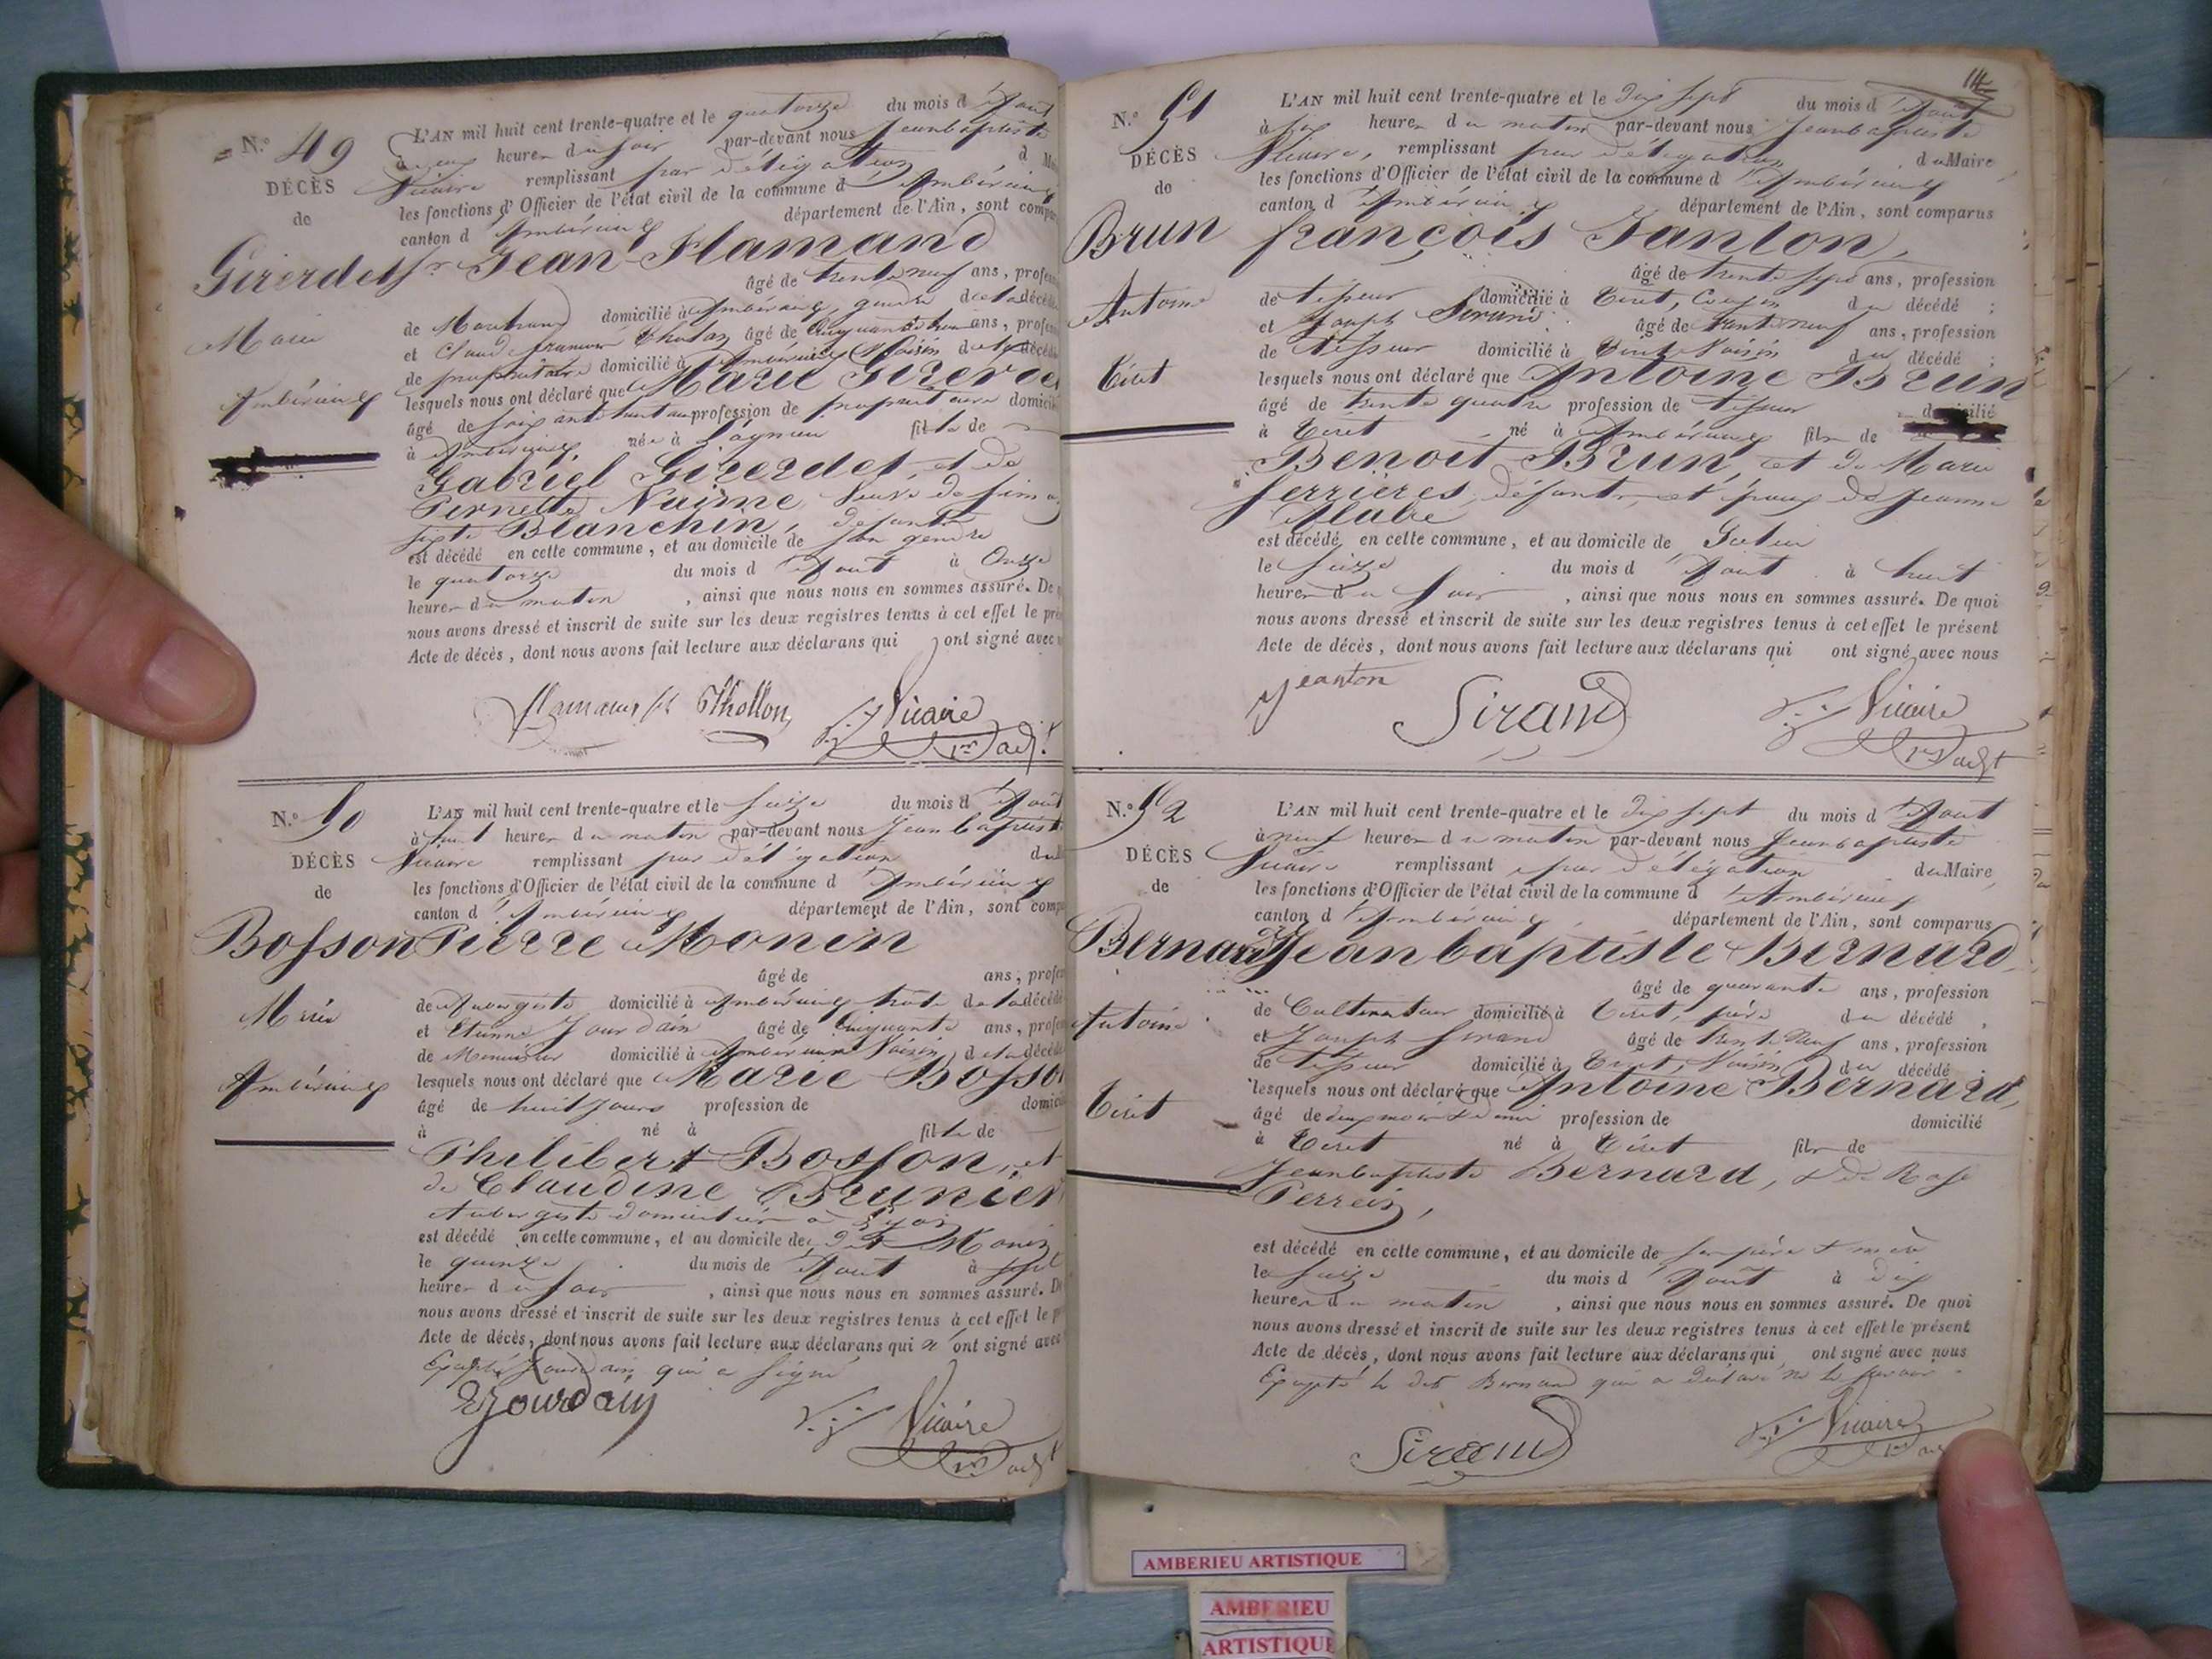 N.° 49
DÉCÈS
de
Girerdet
Marie
Ambérieux
L'AN mil huit cent trente-quatre et le quatorze du mois d'Aout
à heures du soir par-devant nous Jeanbaptiste
Vicaire remplissant par délégation d
les fonctions d'Officier de l'état civil de la commune d'Ambérieux
canton d'Ambérieux département de l'Ain, sont
Jean Flamand
âgé de trente neuf ans,
de Marchand domicilié à Ambérieux, gendre de la
et Claude âgé de ans,
de propriétaire domicilié à Ambérieux Voisin de la
lesquels nous ont déclaré que Marie
âgé de soixante huit ans profession de propriétaire
à Ambérieux, née à Lagnieu fille de
Gabriel Girerdet et de
Pernette veuve de
Blanchin, défunts
est décédé en cette commune, et au domicile de son gendre
le quatorze du mois d'Aout à Onze
heures du matin, ainsi que nous nous en sommes assuré. De
nous avons dressé et inscrit de suite sur les deux registres tenus à cet effet le
Acte de décès, dont nous avons fait lecture aux déclarans qui ont signé avec
Thollon Vicaire
N.° 50
DÉCÈS
de
Bosson
Marie
Ambérieux
L'AN mil huit cent trente-quatre et le Seize du mois d'Aout
à huit heures du matin par-devant nous Jeanbaptiste
Vicaire remplissant par délégation
les fonctions d'Officier de l'état civil de la commune d'Ambérieux
canton d'Ambérieux département de l'Ain, sont
Pierre Monin
âgé de ans,
de Aubergiste domicilié à Ambérieux de la
et Etienne Jourdain âgé de Cinquante ans,
de Menuisier domicilié à Ambérieux Voisin de la
lesquels nous ont déclaré que Marie Bosson
âgé de huit jours profession de
à né à fille de
Philibert Bosson, et
de Claudine Brunier
Aubergiste à Lyon
est décédé en cette commune, et au domicile de dit Monin
le quinze du mois de Aout à sept
heures du soir, ainsi que nous nous en sommes assuré.
nous avons dressé et inscrit de suite sur les deux registres tenus à cet effet le
Acte de décès, dont nous avons fait lecture aux déclarans qui n'ont signé avec
Excepté Jourdain qui a signé
Jourdain Vicaire
114
N.° 51
DÉCÈS
de
Brun
Antoine
Tiret
L'AN mil huit cent trente-quatre et le Dix sept du mois d'Aout
à six heures du matin par-devant nous Jeanbaptiste
Vicaire, remplissant par délégation du Maire
les fonctions d'Officier de l'état civil de la commune d'Ambérieux
canton d'Ambérieux département de l'Ain, sont comparus
françois Janton,
âgé de trente sept ans, profession
de tisseur domicilié à Tiret, Cousin du décédé ;
et Joseph Sirand âgé de trente neuf ans, profession
de tisseur domicilié à Tiret Voisin du décédé ;
lesquels nous ont déclaré que Antoine Brun
âgé de trente quatre profession de tisseur domicilié
à Tiret né à Ambérieux fils de
Benoit Brun, et de Marie
ferrieres, défunts, et époux de Jeanne
est décédé en cette commune, et au domicile de
le Seize du mois d'Aout à huit
heures du soir, ainsi que nous nous en sommes assuré. De quoi
nous avons dressé et inscrit de suite sur les deux registres tenus à cet effet le présent
Acte de décès, dont nous avons fait lecture aux déclarans qui ont signé avec nous
Jeanton Sirand Vicaire
N.° 52
DÉCÈS
de
Bernard
Antoine
Tiret
L'AN mil huit cent trente-quatre et le Dix sept du mois d'Aout
à neuf heures du matin par-devant nous Jeanbaptiste
Vicaire remplissant par délégation du Maire
les fonctions d'Officier de l'état civil de la commune d'Ambérieux
canton d'Ambérieux, département de l'Ain, sont comparus
Jeanbaptiste Bernard
âgé de quarante ans, profession
de Cultivateur domicilié à Tiret, père du décédé
et Joseph Sirand âgé de trente neuf ans, profession
de tisseur domicilié à Tiret, Voisin du décédé
lesquels nous ont déclaré que Antoine Bernard,
âgé de profession de domicilié
à Tiret né à Tiret fils de
Jeanbaptiste Bernard, & de Rose
est décédé en cette commune, et au domicile de son père & mère
le Seize du mois d'Aout à dix
heures du matin, ainsi que nous nous en sommes assuré. De quoi
nous avons dressé et inscrit de suite sur les deux registres tenus à cet effet le présent
Acte de décès, dont nous avons fait lecture aux déclarans qui ont signé avec nous
Excepté le dit Bernard qui a déclaré ne le savoir
Sirand Vicaire
AMBERIEU ARTISTIQUE
AMBERIEU
ARTISTIQUE